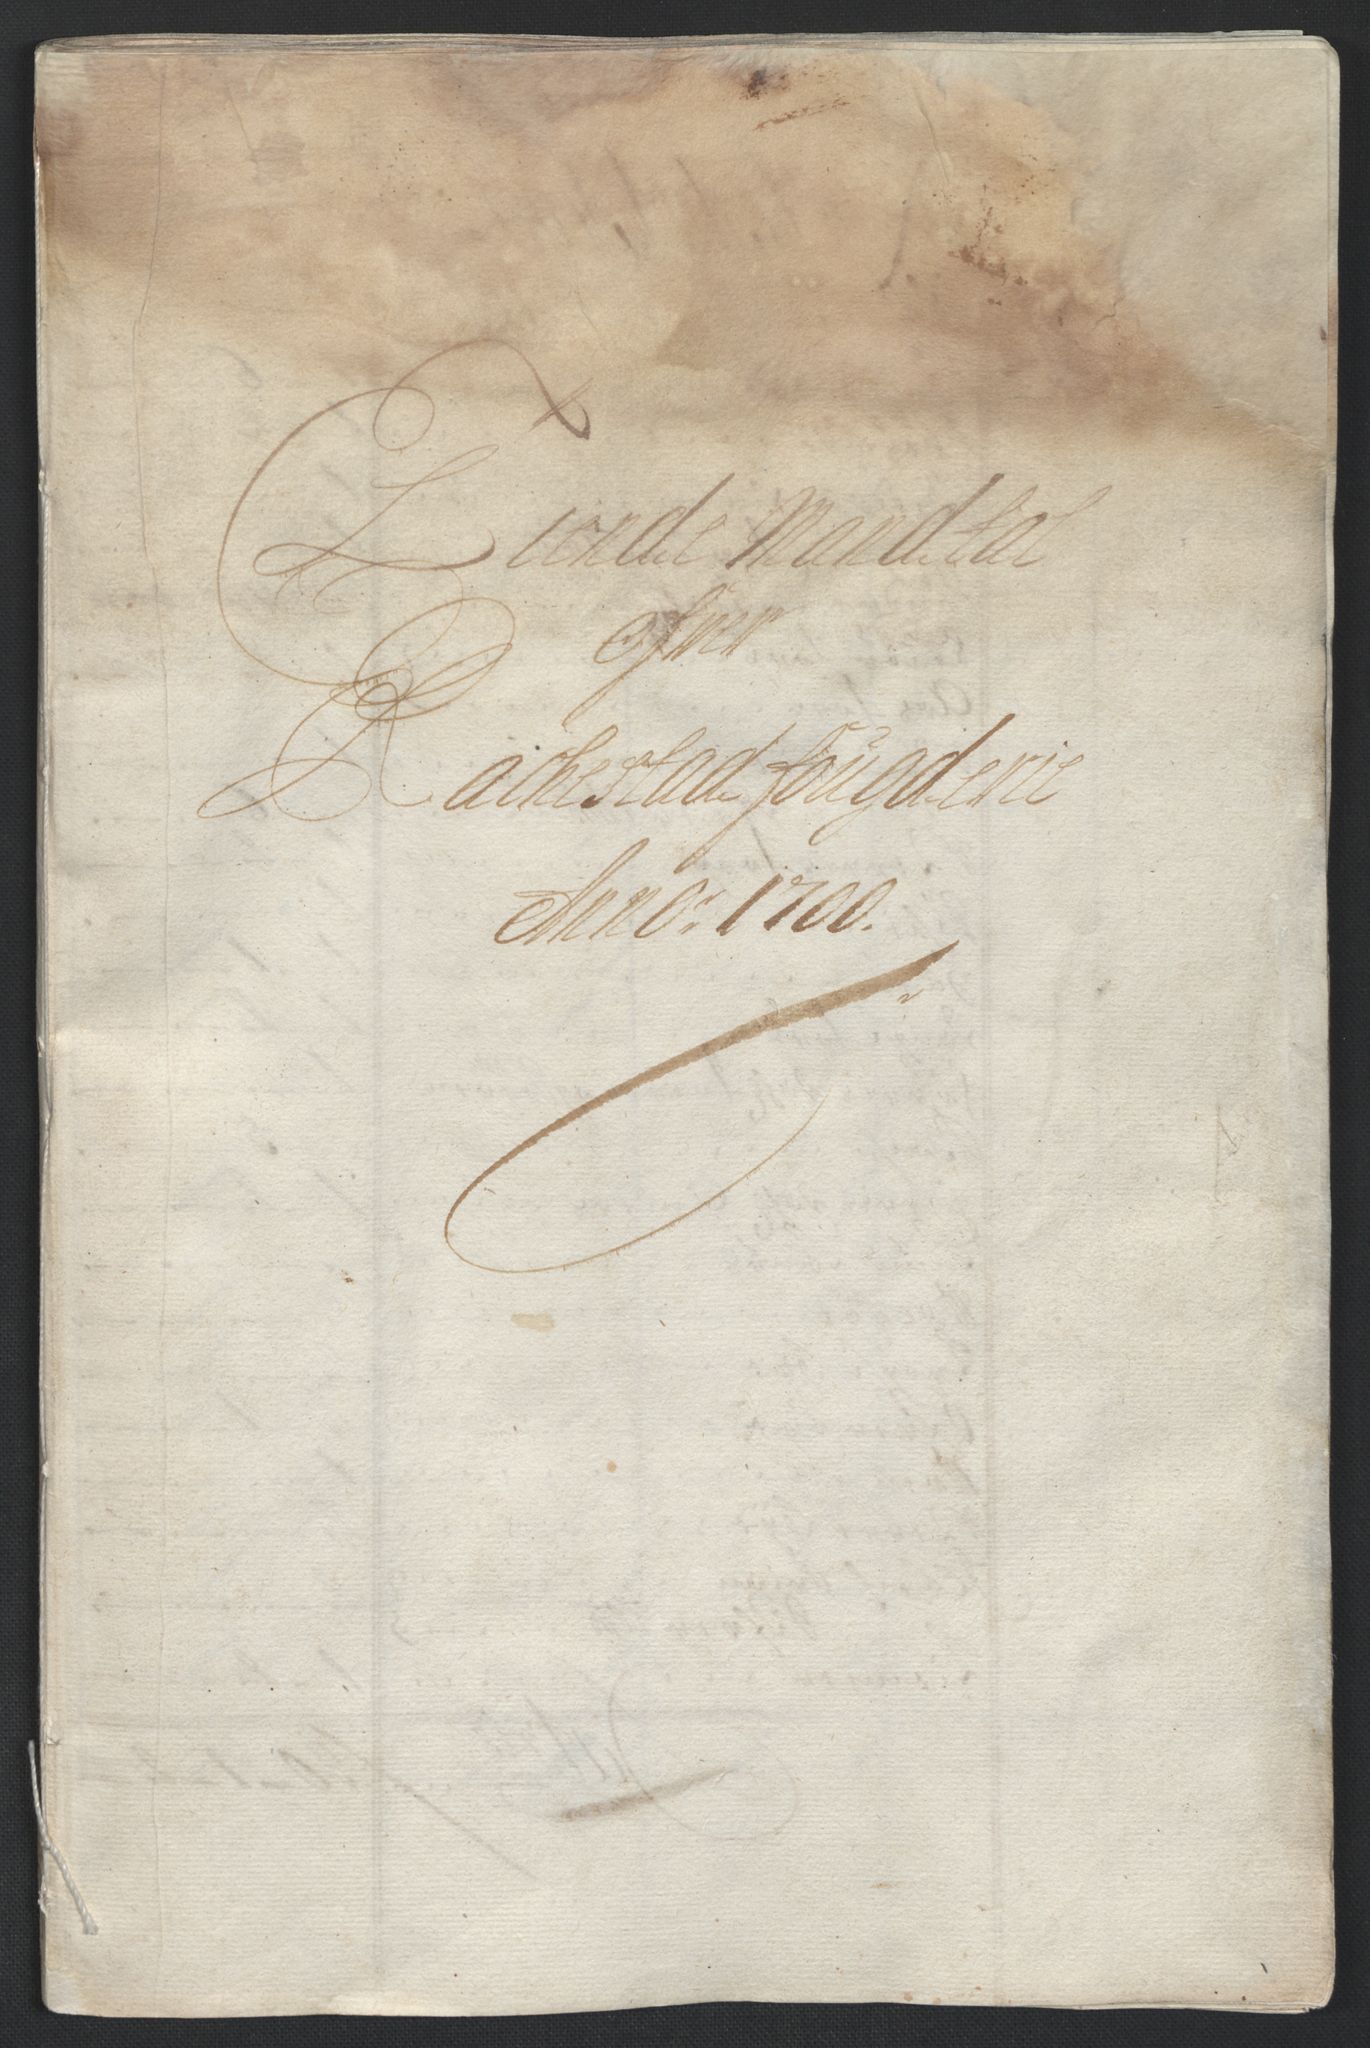 Tiende Mandtal
ofver
Rackestad fougderie
Anno: 1700.